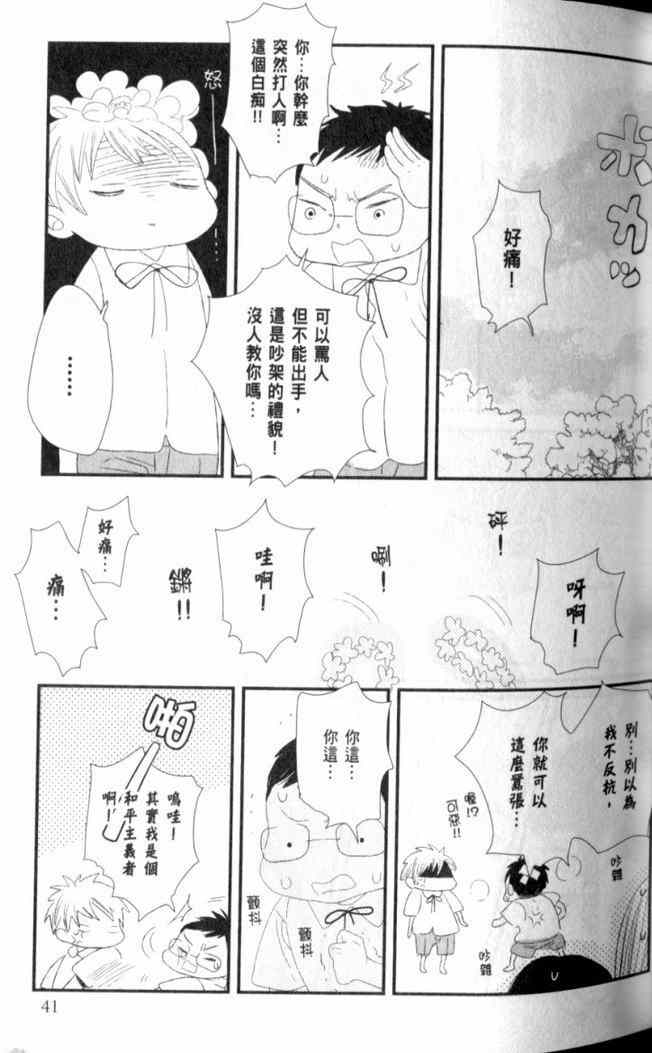 ポカッ
好痛！
你…你幹麼
突然打人啊…
這個白痴!!
可以罵人
但不能出手，
這是吵架的禮貌！
沒人教你嗎…
怒…
……
呀啊！
砰！
唰！
哇啊！
鏘!!
好痛…
痛…
別…別以為
我不反抗，
你就可以
這麼囂張…
喔!?
可惡!!
咔鏘
咔鏘
你這…
你這…
顫抖
顫抖
啪
嗚哇！
其實我是個
和平主義者
啊！
41